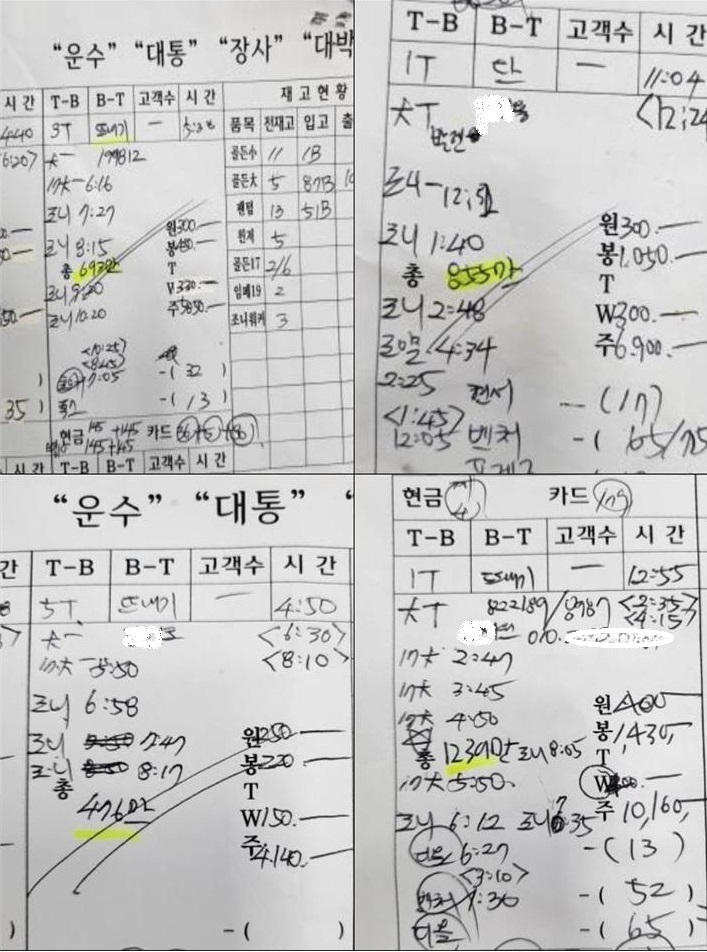 "운수" "대통" "장사" "대박
시 간 T-B B-T 고객수 시 간 재 고 현 황
4:40 5T 뜨내기 — 5:38 품목 전재고 입고 출
6:20> 大一 199812 골든小 11 1B
17大-6:16 골든大 5 87B
조니 7:27 팬텀 13 51B
원300—
조니 8:15 봉450— 윈저 5
총 693만 T 골든17 2/6
조니 9:20 W330— 임페19 2
조니 10:20 주5850— 조니워커 3
<10:25>
<8:45>
7:05 -( 32
35 ) -( 13 )
현금 145+145 카드
145+145
시 간 T-B B-T 고객수 시 간
T-B B-T 고객수 시 간
1T 단 — 11:04
大T <12:24
발렌
조4-12:51
조니 1:40 원300.—
총 855만 봉1,050.—
조니 2:48 T
4:34 W300.—
2:25 주6.900.—
—(17)
<1:45>
12:05 벤처 -( 65/75
"운수" "대통" "
간 T-B B-T 고객수 시 간
5T 뜨내기 — 4:50
大一 <6:30>
17大-5:50 <8:10>
조니 6:58
조니 7:47 원250—
조니 8:17 봉220—
총 T
476만 W150.—
주4.140.—
) -( )
현금 카드 179
T-B B-T 고객수 시 간
1T 뜨내기 — 12:55
大T 822189 <2:35>
<4:15>
010.
17大 2:47
17大 3:45
17大 4:50 원400—
봉1,430,
총 1239만 조니 8:05 T
17大 5:50. W
주 10,160,
조니 6:12 조니 7:35
6:27 -( 13 )
<3:10>
7:36 -( 52 )
더올 -( 65 )